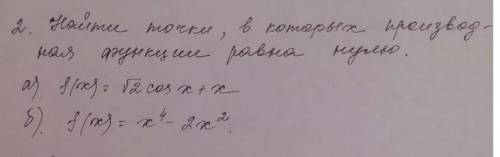 2. Найти точки, в которых производ-
ная функции равна нулю.
а). f(x) = √2 cos x + x
б). f(x) = x⁴ - 2x².